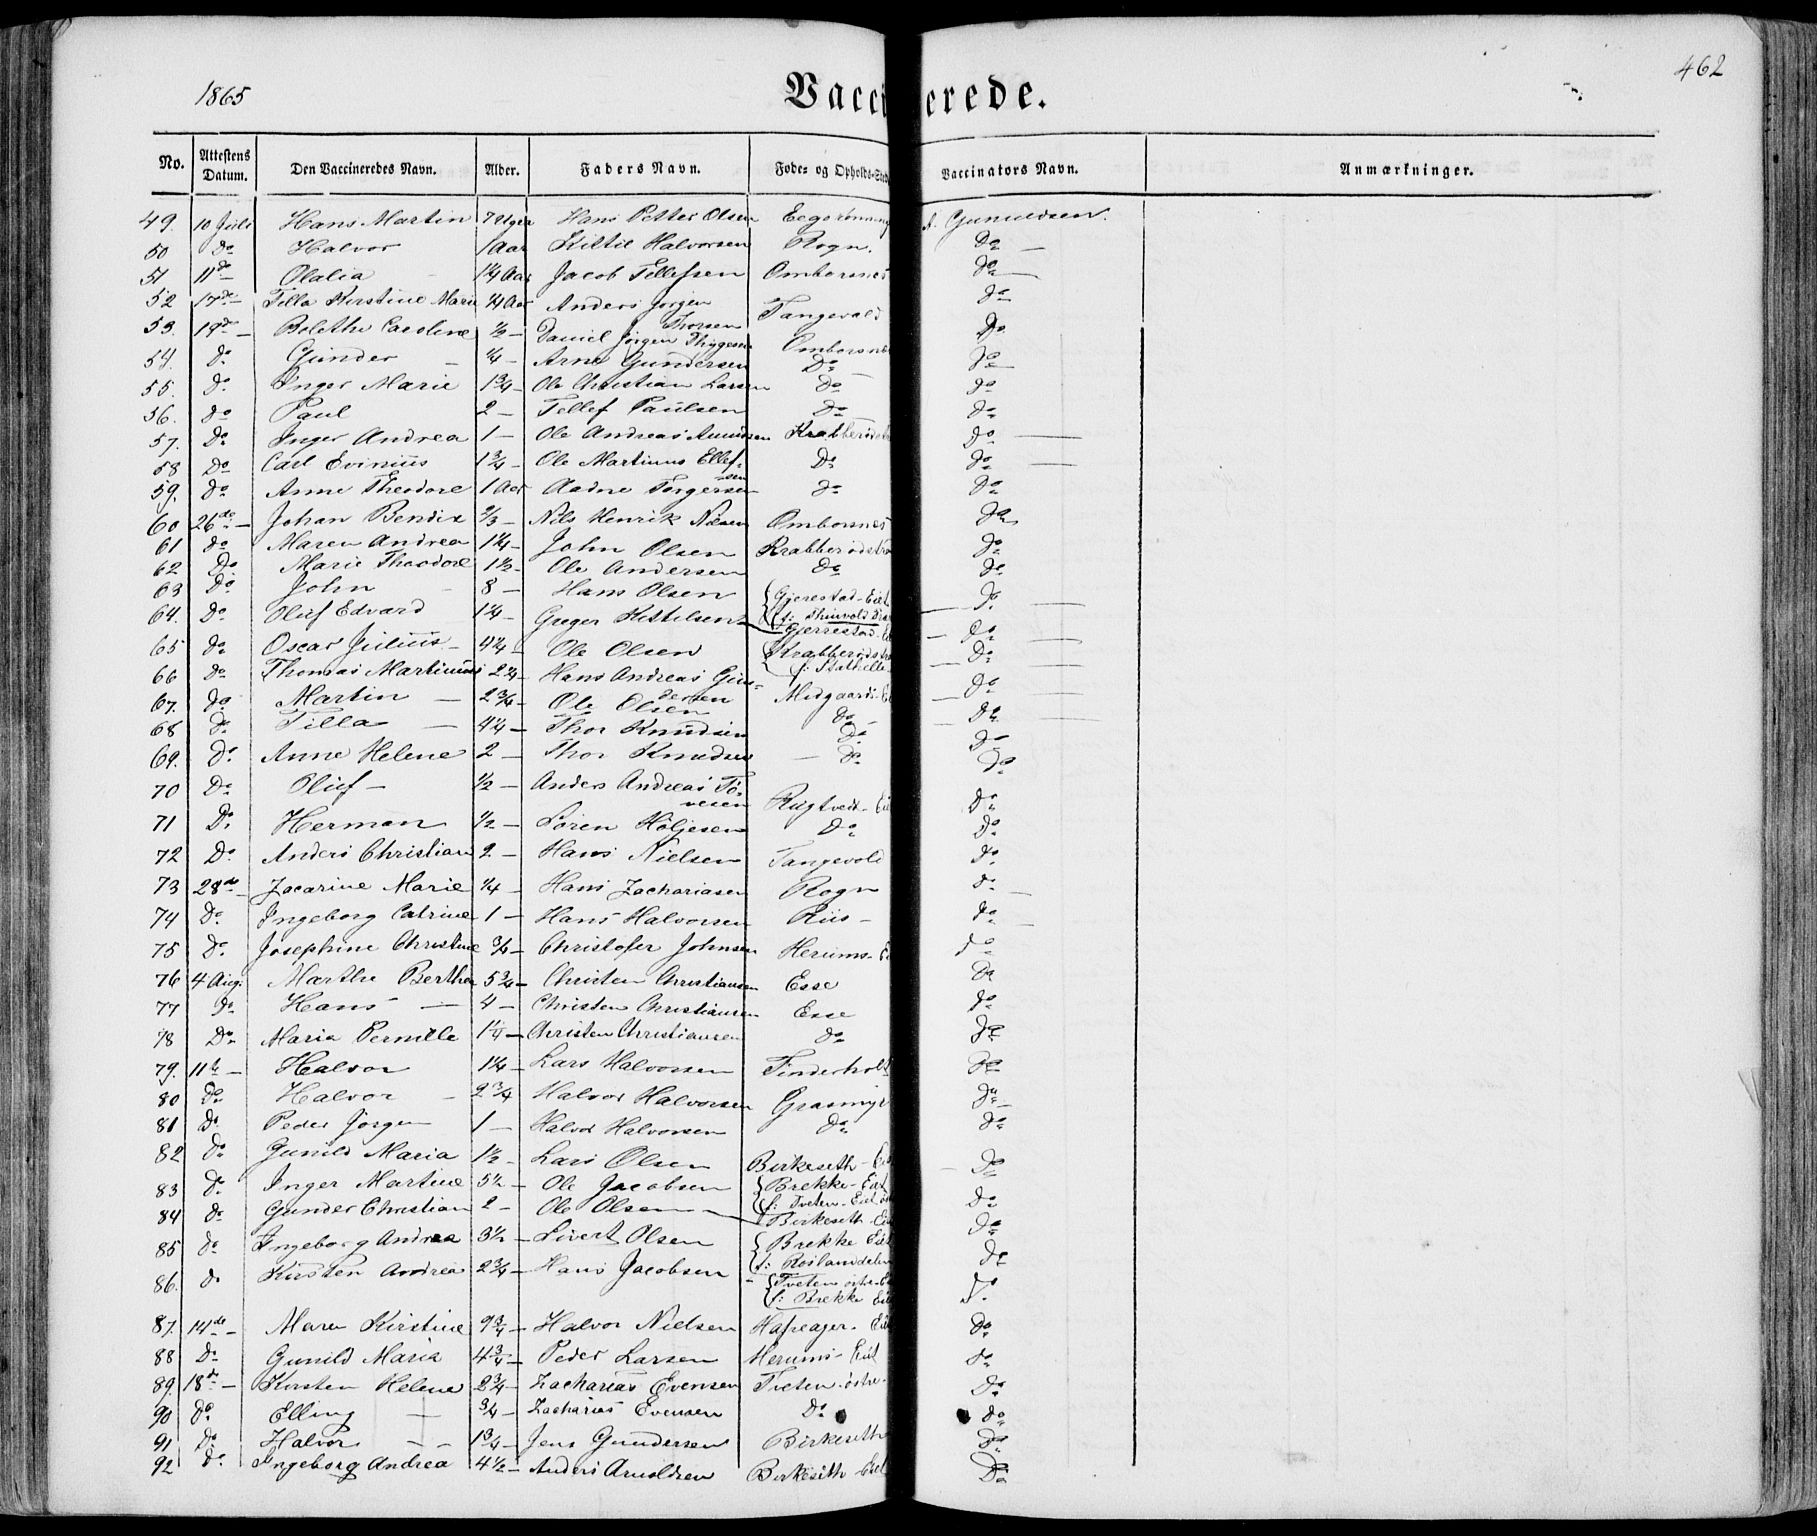 1865
Vaccinerede.
462
No. Attestens Datum. Den Vaccineredes Navn. Alder. Faders Navn. Føde- og Opholds-Sted Vaccinators Navn. Anmærkninger.
49. 10 Juli Hans Martin 7 Uger Hans Petter Olsen Gunuldsen.
50 Do Halvor 1 Aar Kiltil Halvorsen Rogn. Do —
51 11te Olalia 1 1/4 Aar Jacob Tellefsen Omborsnes Do
52 17de — Tilla Kirstine Marie 1/4 Aar Anders Jørgen Thorsen Tangevald Do
53. 19de — Bolethe Caroline 1/2 — Daniel Jørgen Thygesen Omborsnes Do
54. Do Gunder — 1/4 — Arne Gundersen Do — Do
55. Do Inger Marie 1 3/4 — Ole Christian Larsen Do Do
56. Do Paul 2 — Tellef Paulsen Do Do
57. Do Inger Andrea 1 — Ole Andreas Amundsen Do —
58 Do Carl Evinius 1 3/4 — Ole Martinus Ellefsen Do Do —
59. Do Anne Theodore 1 Aar Aadne Torgersen Do Do
60 26de — Johan Bendix 2/3 — Nils Henrik Nilsen Omborsnes Do
61 Do Maren Andrea 1 1/4 — John Olsen Krabberødstra Do
62 Do Marie Theodore 1 1/2 — Ole Andersen Do Do
63 Do John 8 — Hans Olsen Gjerestad-Eiet Do —
64. Do Oluf Edvard 1 1/4 — Greger Kittelsen Gjerrestad-E Do
65 Do Oscar Julius — 4 1/4 — Ole Olsen Krabberødstra f: Stathelle Do
66 Do Thomas Martinius 2 1/4 — Hans Andreas Gundersen Midgaards-E Do
67. Do Martin — 2 3/4 — Ole Olsen Do — Do
68 Do Tilla — 4 1/4 — Thor Knudsen Do Do
69. Do Anne Helene 2 — Thor Knudsen — Do Do
70 Do Oluf — 1/2 — Anders Andreas Rugtvedt-Ei Do
71 Do Herman 1/2 — Søren Holjesen Do Do
72 Do Anders Christian 2 — Hans Nielsen Tangevold Do
73 28de — Zacarine Marie 1/4 — Hans Zachariasen Rogn Do
74 Do Ingeborg Catrine 1 — Hans Halvorsen Riis — Do
75 Do Josephine Christine 3/4 — Christofer Johnsen Herums-E Do
76 4 Aug. Marthe Berthea 5 3/4 — Christen Christiansen Esse Do
77 Do Hans — 4 — Christen Christiansen Esse Do
78 Do Maria Pernille 1 1/4 — Christen Christiansen Do Do
79. 11te — Halvor 1 1/4 — Lars Halvorsen Tinderholt Do
80 Do Halvor — 2 3/4 Halvor Halvorsen Grasmyr Do —
81 Do Peder Jørgen 1 — Halvor Halvorsen Do Do
82 Do Gunild Maria 1 1/2 — Lars Olsen Birkeseth-Eie — Do
83 Do Inger Martine 5 1/2 — Ole Jacobsen Brekke-Eiet f: Tveten-Eiet østre Do
84 Do Gunder Christian 2 — Ole Olsen — Birkeseth-Ei Do
85 Do Ingeborg Andrea 3 1/2 — Sivert Olsen Brekke Eiet Do
86. Do Kirsten Andrea 2 3/4 — Hans Jacobsen Tveten østre-E f: Brekke Eie Do
87. 14de — Maren Kirstine 9 3/4 — Halvor Nielsen Hafreager-Eie Do
88 Do Gunild Maria 4 3/4 — Peder Larsen Herums-Eiet Do
89. 18de — Kirsten Helene 2 3/4 — Zacharias Evensen Tveten-østre- Do
90 Do Elling — 3/4 — Zacharias Evensen Do Do
91 Do Halvor — 1 3/4 — Jens Gundersen Birkeseth Do
92 Do Ingeborg Andrea 4 1/2 — Anders Arnoldsen Birkeseth-Eiet Do